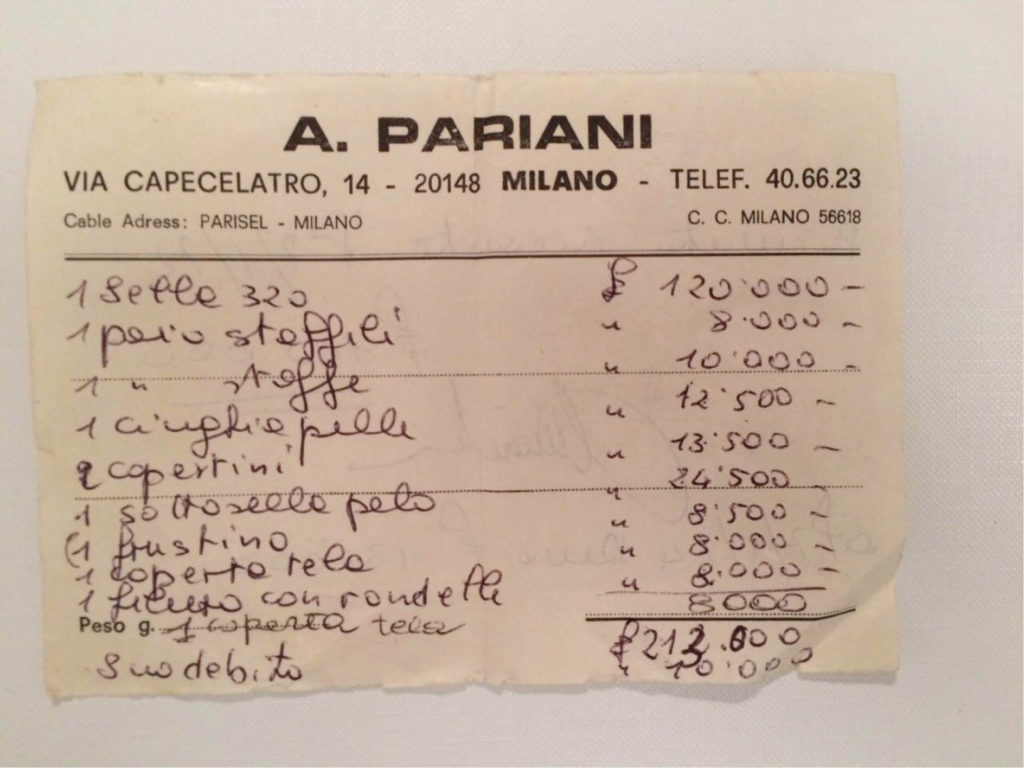 A. PARIANI
VIA CAPECELATRO, 14 - 20148 MILANO - TELEF. 40.66.23
Cable Adress: PARISEL - MILANO C. C. MILANO 56618
1 Sella 320 £ 120'000 –
1 paio staffili " 8.000 –
1 " staffe " 10'000 –
1 cinghia pelle " 12'500 –
2 copertini " 13'500 –
1 sottosella pelo " 24'500
(1 frustino " 8'500 –
1 coperta tela " 8.000 –
1 filetto con rondelle " 8.000 –
Peso g. 1 coperta tela 8000
£ 212.000
Suo debito " 10.000